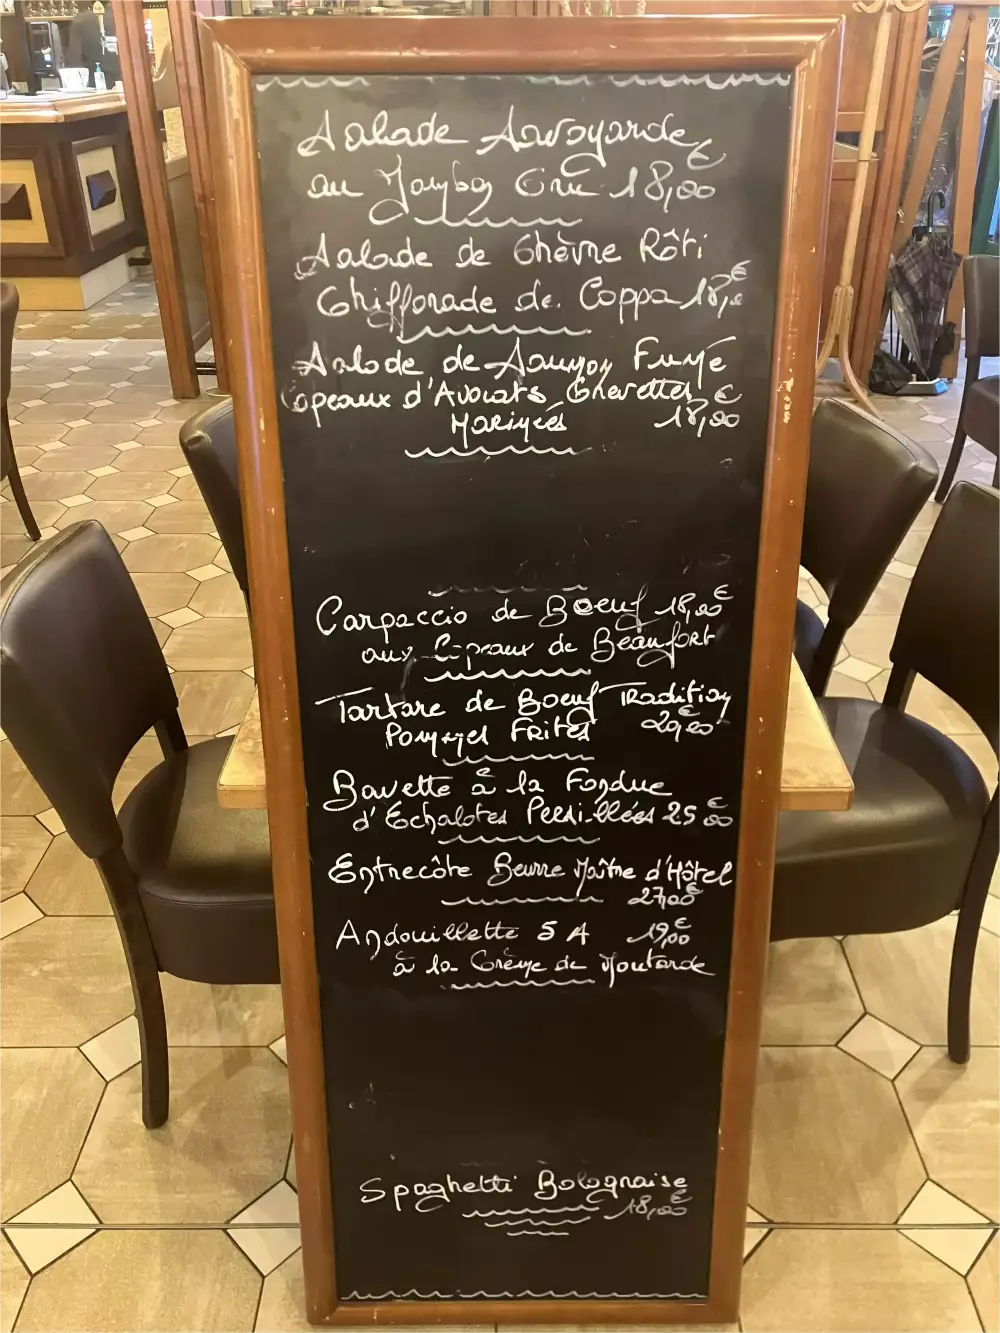 Salade Savoyarde
au Jambon Cru 18,00€
Salade de Chèvre Rôti
Chiffonade de Coppa 18,€
Salade de Saumon Fumé
Copeaux d'Avocats, Crevettes
Marinées 18,00€
Carpaccio de Boeuf 18,00€
aux Copeaux de Beaufort
Tartare de Boeuf Tradition
Pommes Frites 20,00€
Bavette à la Fondue
d'Echalotes Persillées 25€00
Entrecôte Beurre Maître d'Hôtel
27,00€
Andouillette 5 A 19,00€
à la Crème de Moutarde
Spaghetti Bolognaise
18,00€